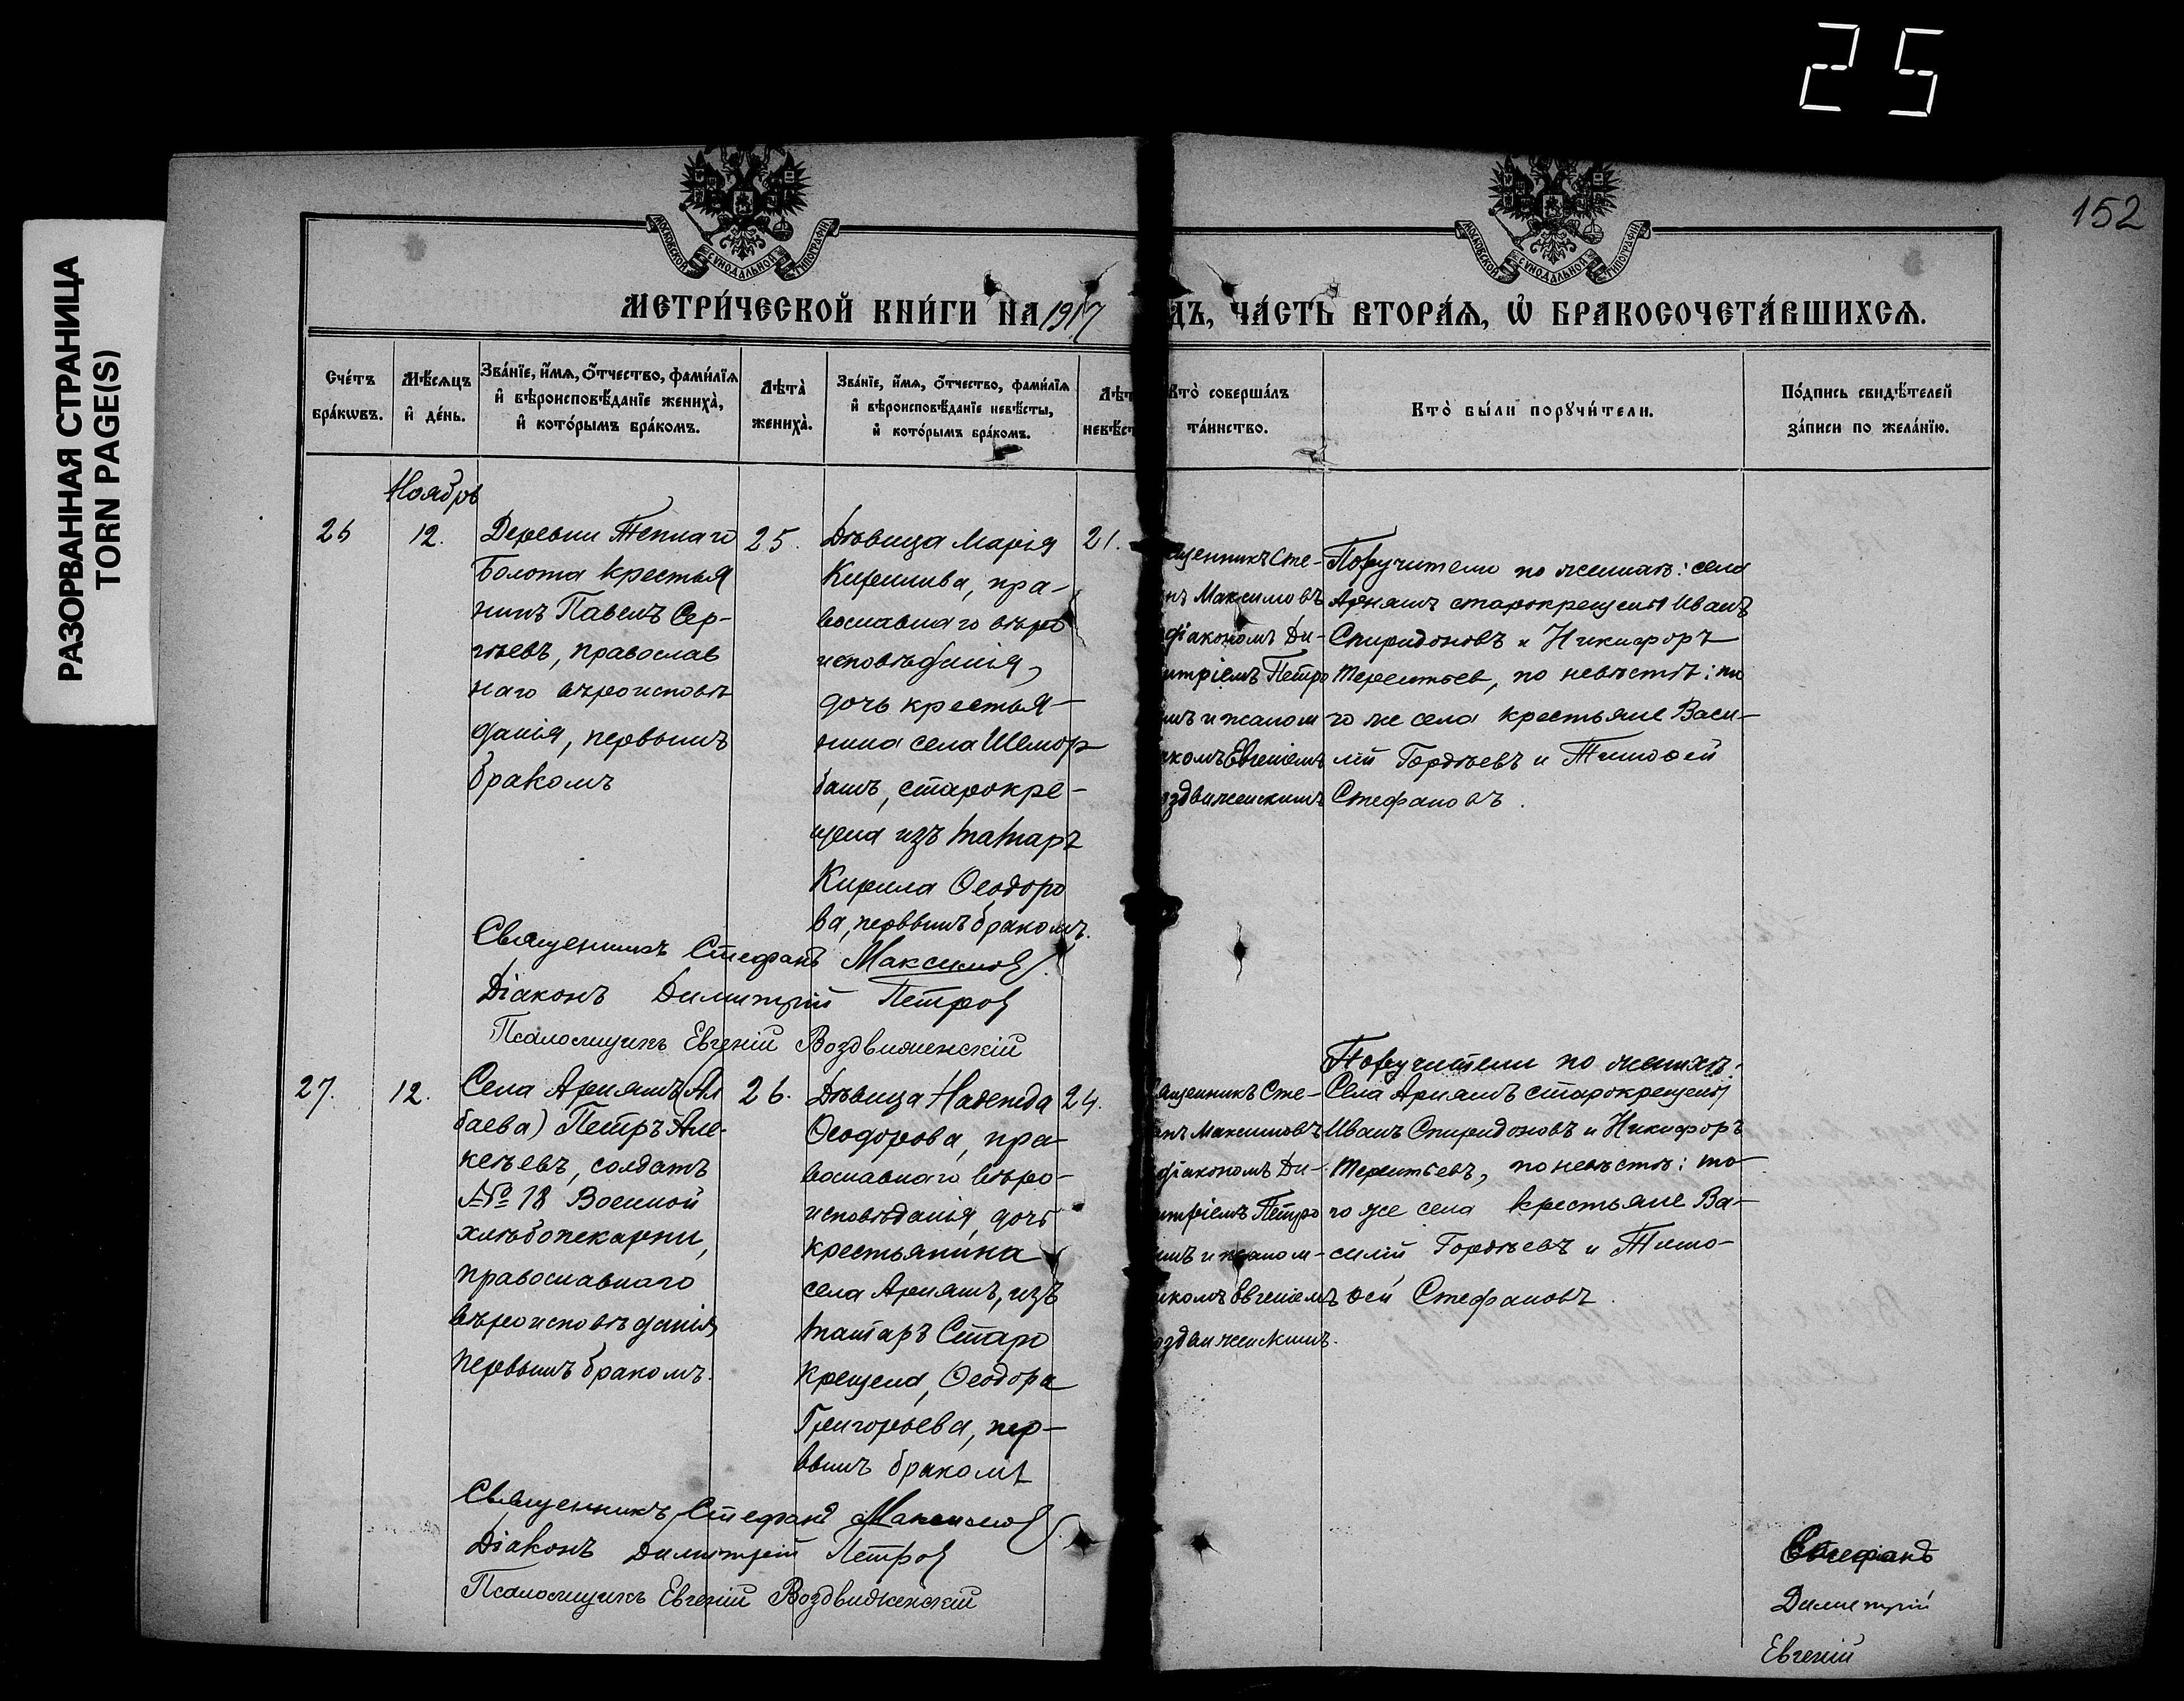 25
152
РАЗОРВАННАЯ СТРАНИЦА
TORN PAGE(S)
МОСКОВСКОЙ СѴНОДАЛЬНОЙ ТИПОГРАФІИ
МОСКОВСКОЙ СѴНОДАЛЬНОЙ ТИПОГРАФІИ
МЕТРИ́ЧЕСКОЙ КНИ́ГИ НА 1917
ДЪ, ЧА́СТЬ ВТОРА́Ѧ, Ѡ БРАКОСОЧЕТА́ВШИХСѦ.
Сче́тъ
бра́кѡвъ.
Мѣ́сѧцъ
и҆ де́нь.
Зва́нїе, и҆́мѧ, ѻ҆́тчество, фами́лїѧ
и҆ вѣроисповѣ́данїе жениха̀,
и҆ кото́рымъ бра́комъ.
Лѣта̀
жениха̀.
Зва́нїе, и҆́мѧ, ѻ҆́тчество, фами́лїѧ
и҆ вѣроисповѣ́данїе невѣ́сты,
и҆ кото́рымъ бра́комъ.
Лѣт
невѣст
Кто̀ соверша́лъ
та́инство.
Кто̀ бы́ли порꙋчи́тели.
По́дпись свидѣ́телей
за́писи по жела́нїю.
Ноябрь
26
12.
Деревни Теплаго
Болота крестья
нинъ Павелъ Сер-
гѣевъ, православ
наго вѣроисповѣ
данія, первымъ
бракомъ
25.
Дѣвица Марія
Кирилова, пра-
вославнаго вѣро
исповѣданія,
дочь крестья-
нина села Шемор
башъ, старокре-
щена изъ татаръ
Кирила Ѳеодоро
ва, первымъ бракомъ.
21.
щенникъ Сте-
нъ Максимовъ
діакономъ Ди-
итріемъ Петро
ымъ и псалом
икомъ Евгеніемъ
оздвиженскимъ
Поручители по женихѣ: села
Аряшъ старокрещены Иванъ
Спиридоновъ и Никифоръ
Терентьев, по невѣстѣ: то
го же села крестьяне Васи-
лій Гордѣевъ и Тимоѳей
Стефановъ.
Священникъ Стефанъ Максимов
Діаконъ Димитрій Петров
Псаломщикъ Евгеній Воздвиженскій
27.
12.
Села Аряшъ (Ал
баева) Петръ Але-
ксѣевъ, солдатъ
№ 18 Военной
хлѣбопекарни,
православнаго
вѣроисповѣданія
первымъ бракомъ.
26.
Дѣвица Надежда
Ѳеодорова, пра-
вославнаго вѣро-
исповѣданія, дочь
крестьянина
села Аряшъ, изъ
татаръ Старо
крещена, Ѳеодора
Григорьева, пер-
вымъ бракомъ
24.
ященникъ Сте-
анъ Максимовъ
діакономъ Ди-
итріемъ Петро
ымъ и псалом-
икомъ Евгеніемъ
оздвиженскимъ.
Поручители по женихѣ:
Села Аряшъ старокрещены
Иванъ Спиридоновъ и Никифоръ
Терентьевъ, по невѣстѣ: то-
го же села крестьяне Ва-
силій Гордѣевъ и Тимо-
ѳей Стефановъ
Священникъ Стефанъ Максимов
Діаконъ Димитрій Петров
Псаломщикъ Евгеній Воздвиженскій
Стефанъ
Димитрій
Евгеній